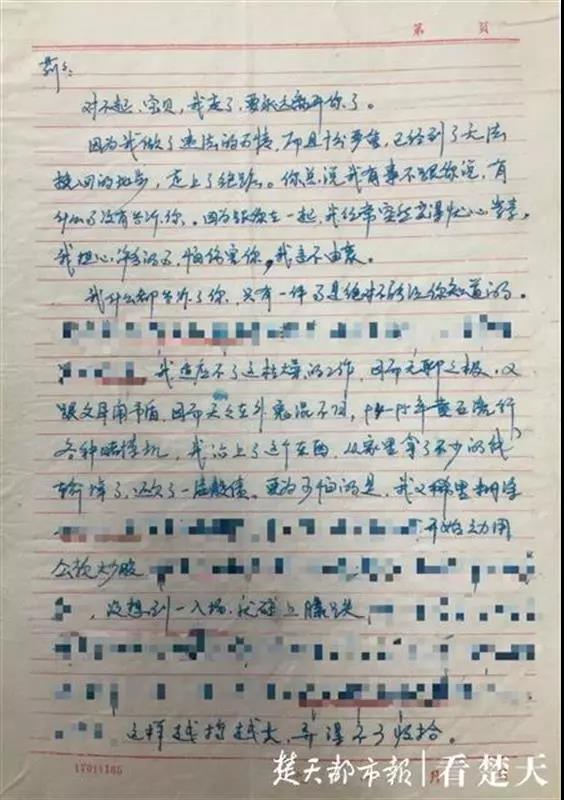 第 页
对不起，宝贝，我走了，要永远离开你了。
因为我做了违法的事情，而且十分严重，已经到了无法
挽回的地步，走上了绝路。你总说我有事不跟你说，有
什么事没有告诉你。因为跟你在一起，我经常突然变得忧心
我担心 怕伤害你，我言不由衷。
我什么都告诉了你，只有一件事是绝对不能让你知道的。
我适应不了这枯燥的工作，因而无聊之极，又
跟父母闹矛盾，因而天天在外鬼混不归，年黄石流行
各种赌博机，我沾上了这个东西，从家里拿了不少的钱
输掉了，还欠了一屁股债。更为可怕的是，我又稀里糊涂
开始动用
公款炒股
，没想到一入场，就碰上
这样越搞越大，弄得不了收拾。
17011165
楚天都市报 看楚天